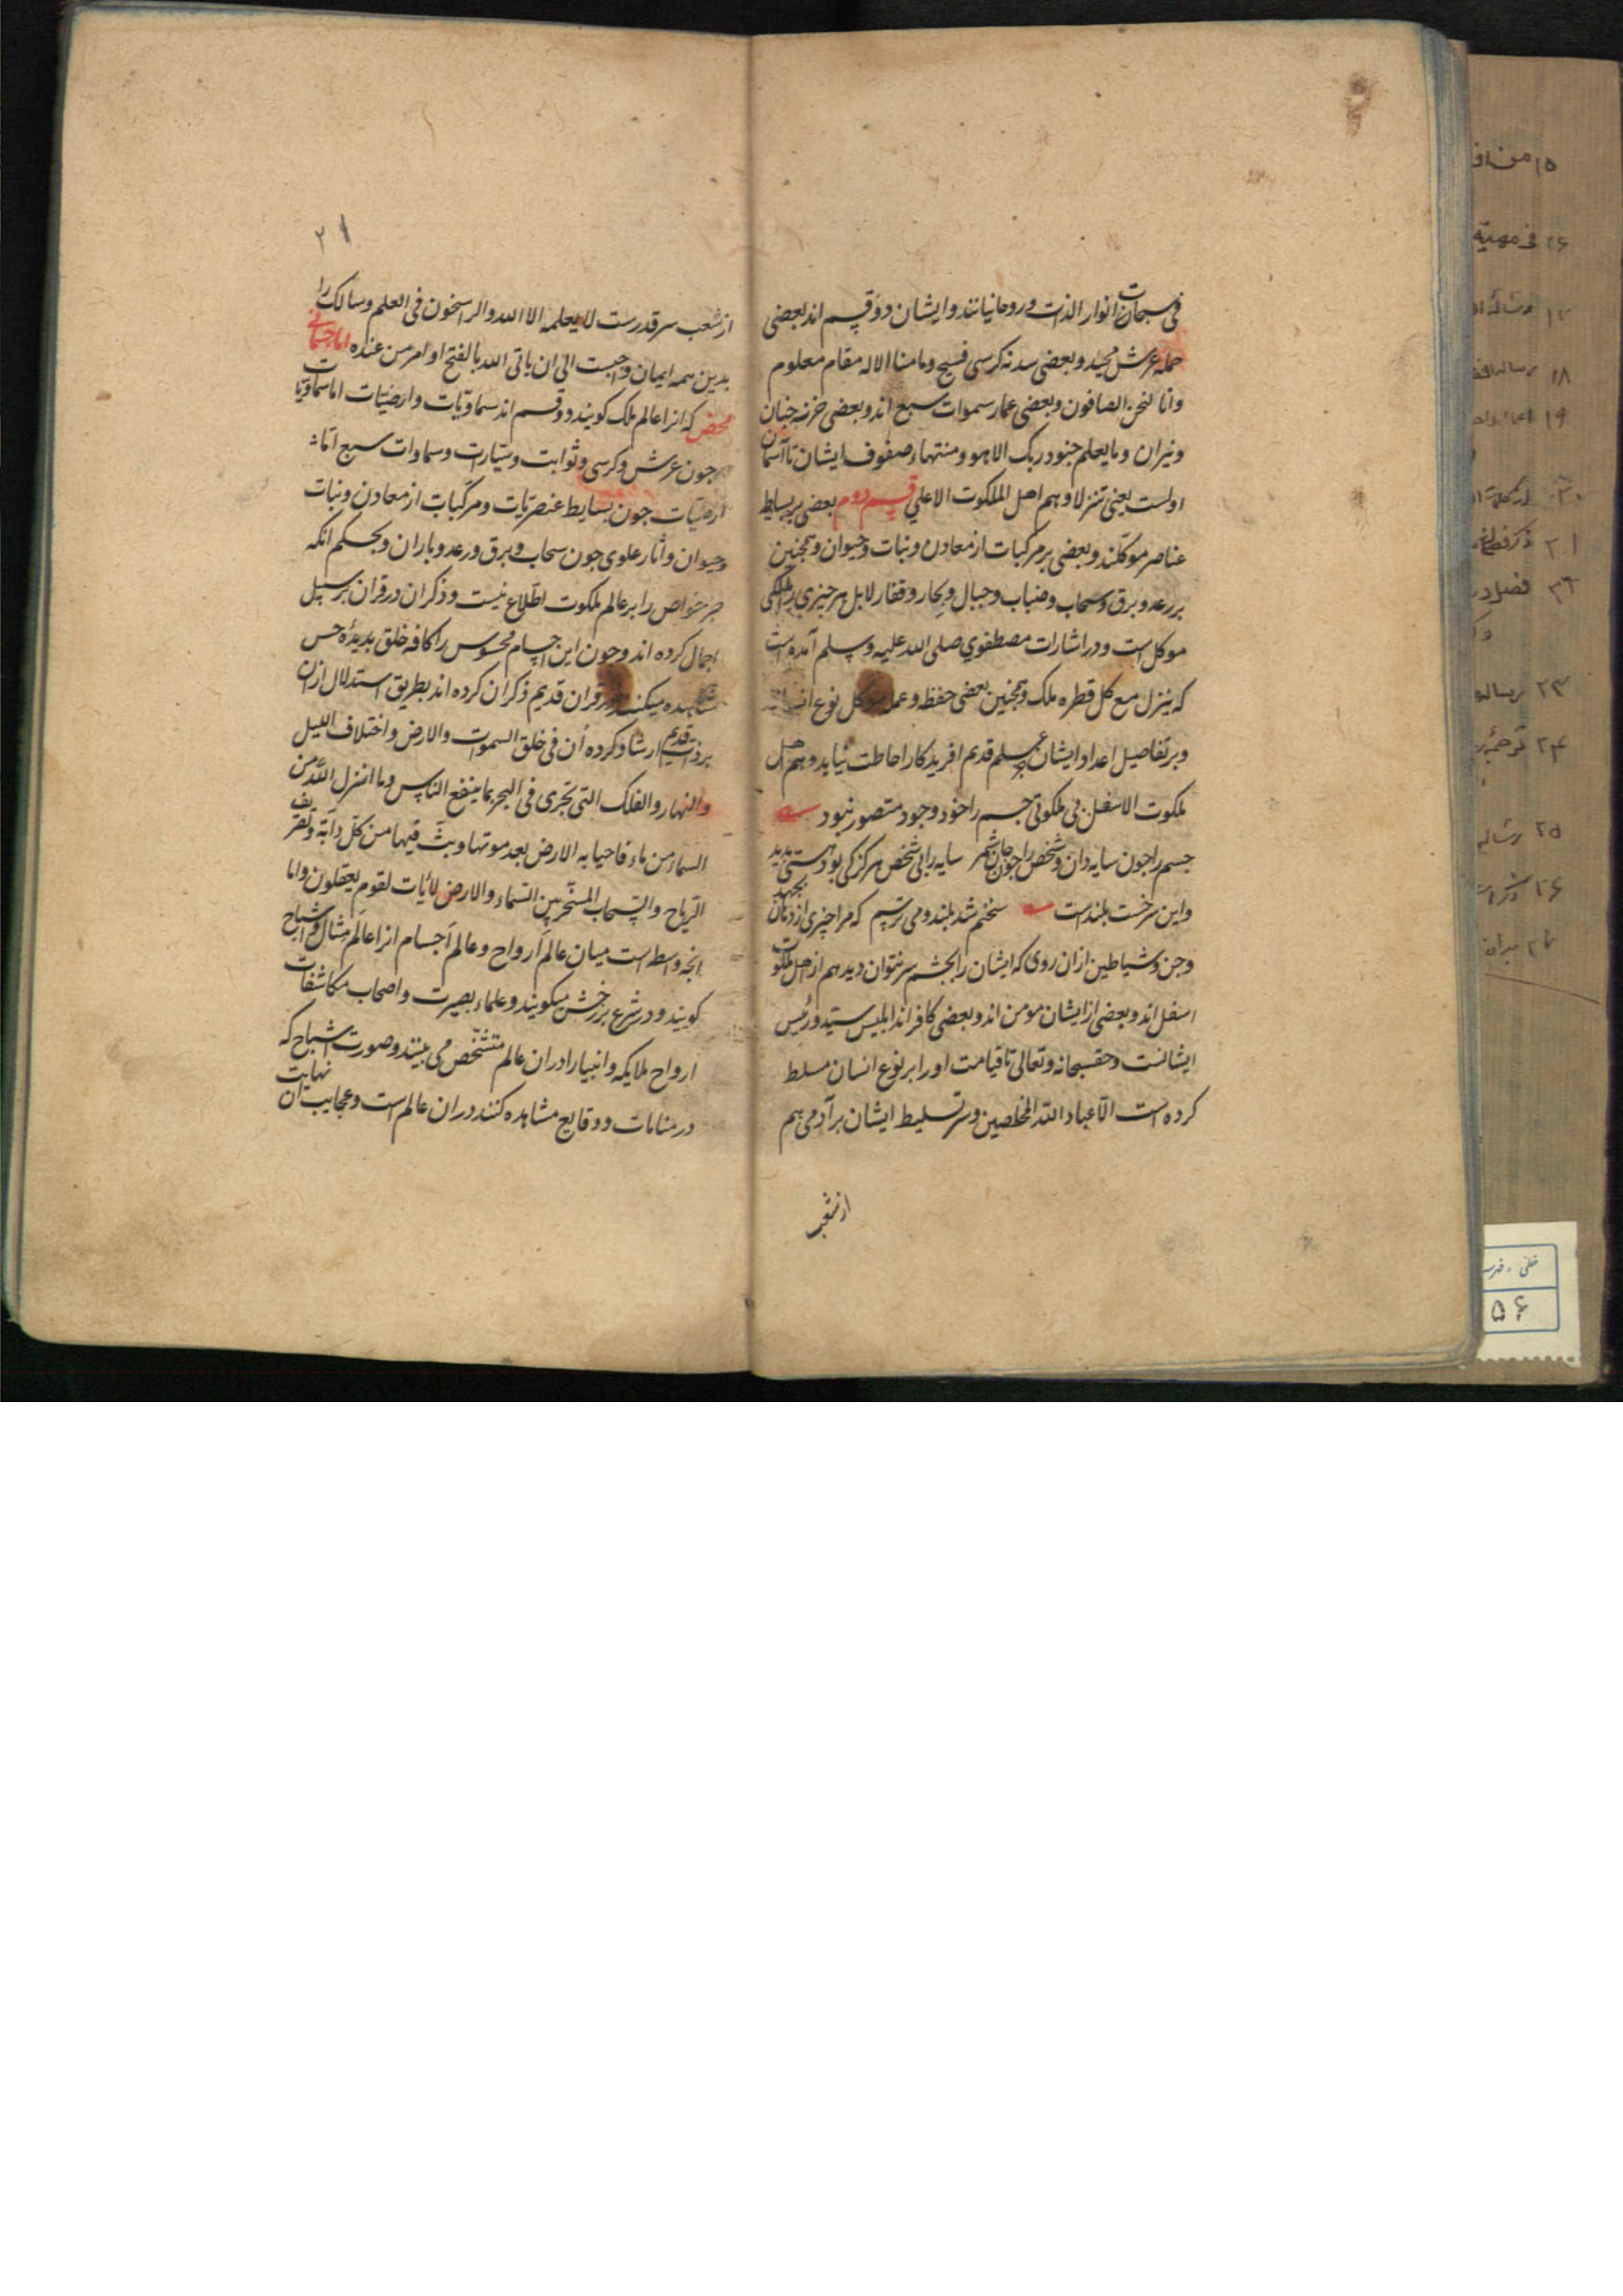 فی سبحات انوار الذات و روحانیانند و ایشان دو قسم اند بعضی
حمله عرش مجید و بعضی سدنه کرسی فسیح و ما منا الا له مقام معلوم
و انا لنحن الصافون و بعضی عمار سموات سبع اند و بعضی خزنه جنان
و نیران و ما یعلم جنود ربک الا هو و منتهاء صفوف ایشان تا آسمان
اولست یعنی تنزلا و هم اهل الملکوت الاعلی قسم دوم بعضی بر بسایط
عناصر موکلند و بعضی بر مرکبات از معادن و نبات و حیوان و همجنین
بر رعد و برق و سحاب و ضباب و جبال و بحار و قفار لا بل بر هر جیزی ملکی
موکل است و در اشارات مصطفوی صلی الله علیه و سلم آمده است
که ینزل مع کل قطره ملک و همجنین بعضی حفظه و عمله موکل نوع
و بر تفاصیل اعداد ایشان جز علم قدیم افریدکار احاطت نیابد و هم اهل
ملکوت الاسفل بی ملکوتی جسم را خود وجود متصور نبود
جسم را جون سایه دان و شخص را جون جان شمر سایه را بی شخص هرکز کی بود هستی بدید
و این سر سخت بلند است سخنم شد بلند و می ترسم که مرا جیزی از دهان بجهد
و جن و شیاطین ازان روی که ایشان را بجشم سر نتوان دید هم از اهل ملکوت
اسفل اند و بعضی از ایشان مومن اند و بعضی کافر اند ابلیس سید و رئیس
ایشانست و حق سبحانه و تعالی تا قیامت او را بر نوع انسان مسلط
کرده است الا عباد الله المخلصین و سر تسلیط ایشان بر آدمی هم
از شعب
۲۱
از شعب سر قدرست لا یعلمه الا الله و الراسخون فی العلم و سالک را
بدین همه ایمان واجبست الی ان یاتی الله بالفتح او امر من عنده اما جسمانی
محض که انرا عالم ملک کویند دو قسم اند سماویات و ارضیات اما سماویات
جون عرش و کرسی و ثوابت و سیارات و سماوات سبع اما
ارضیات جون بسایط عنصریات و مرکبات از معادن و نبات
و حیوان و اثار علوی جون سحاب و برق و رعد و باران و بحکم انکه
جز خواص را بر عالم ملکوت اطلاع نیست و ذکر ان در قران بر سبیل
اجمال کرده اند و جون این اجسام محسوس را کافه خلق بدیده حس
مشاهده میکنند در قران قدیم ذکر ان کرده اند بطریق استدلال ازان
بر ذات قدیم ارشاد کرده ان فی خلق السموات و الارض و اختلاف اللیل
و النهار و الفلک التی تجری فی البحر بما ینفع الناس و ما انزل الله من
السماء من ماء فاحیا به الارض بعد موتها و بث فیها من کل دابة و تصریف
الریاح و السحاب المسخر بین السماء و الارض لایات لقوم یعقلون و اما
انجه واسطه است میان عالم ارواح و عالم اجسام انرا عالم مثال و اشباح
کویند و در شرع برزخش میکویند و علماء بصیرت و اصحاب مکاشفات
ارواح ملایکه و انبیا را دران عالم متشخص می بینند و صورت اشباح که
در منامات و وقایع مشاهده کنند دران عالم است و عجایب ان نهایت
۱۵
۲۶ فی مهیة
۱۷
۱۸
۱۹
۳۰
۲۱
۲۳
۲۴
۲۵
۲۶
خطی - فهرست
۵۶